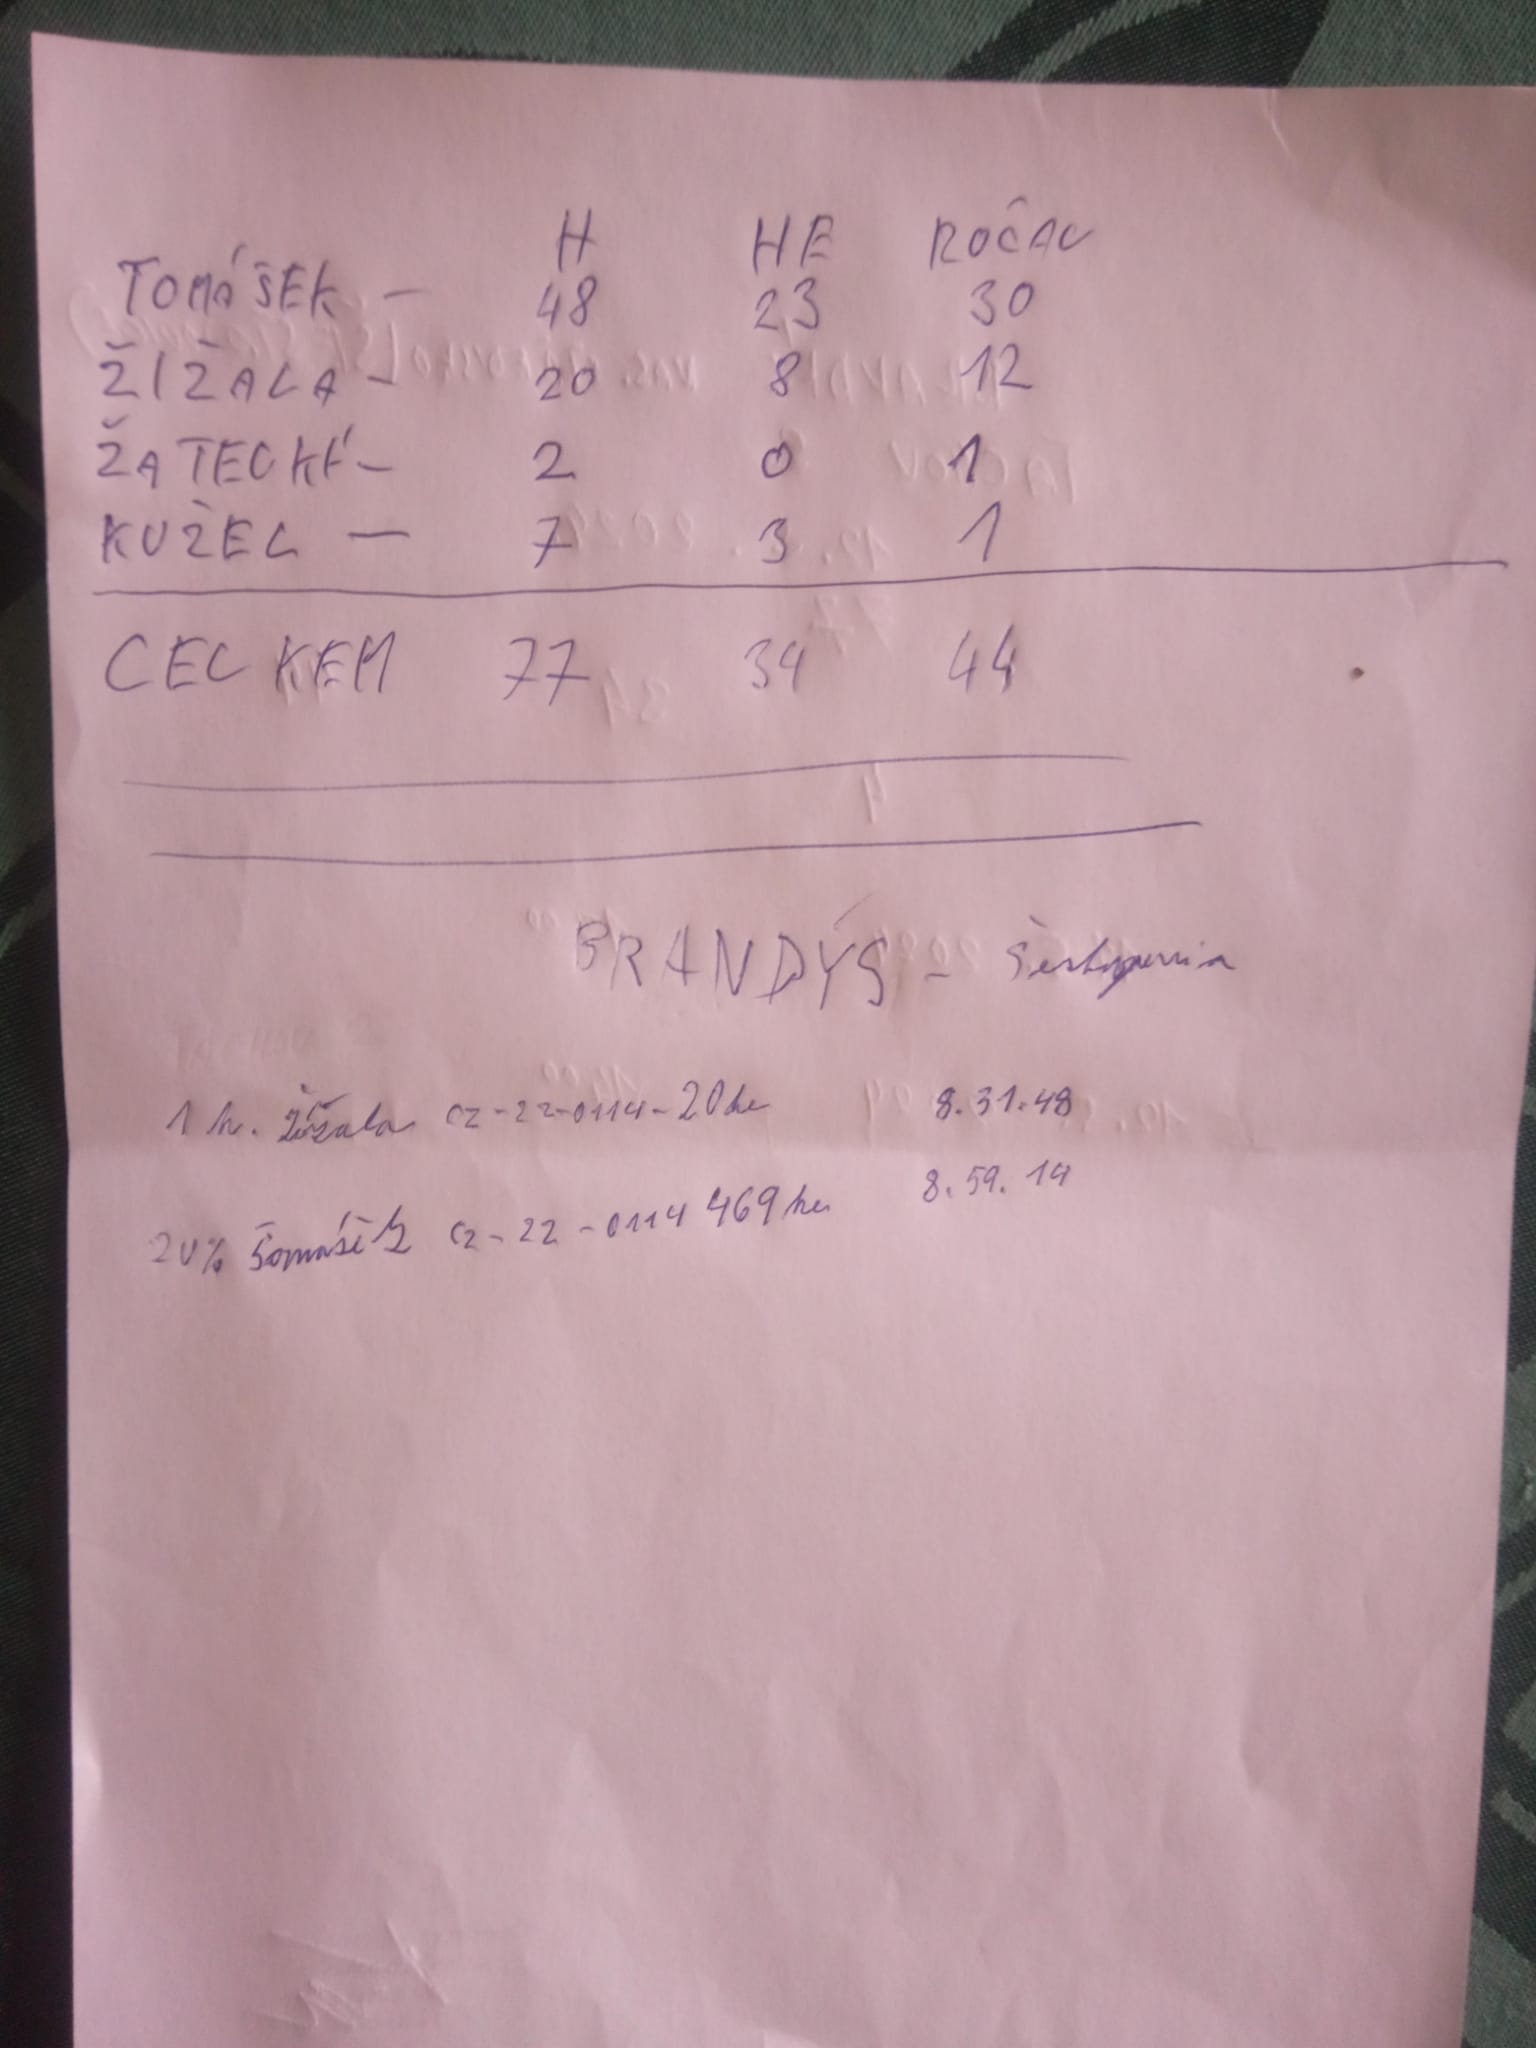 H HE ROČAL
TOMÁŠEK – 48 23 30
ŽÍŽALA – 20 8 12
ŽATECKÝ – 2 0 1
KUŽEL – 7 3 1
CELKEM 77 34 44
BRANDÝS –
1 h. Žížala CZ-22-0114-20he 8.31.48
20% Tomášek CZ-22-0114 469he 8.59.14